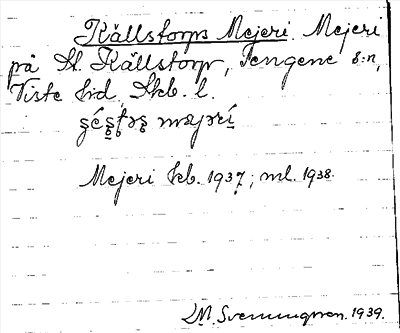 Källstorps Mejeri. Mejeri
på St. Källstorp, Tengene s:n,
Viste hd, Skb. l.
Mejeri kb. 1937; ml. 1938.
M. Svenungsson. 1939.